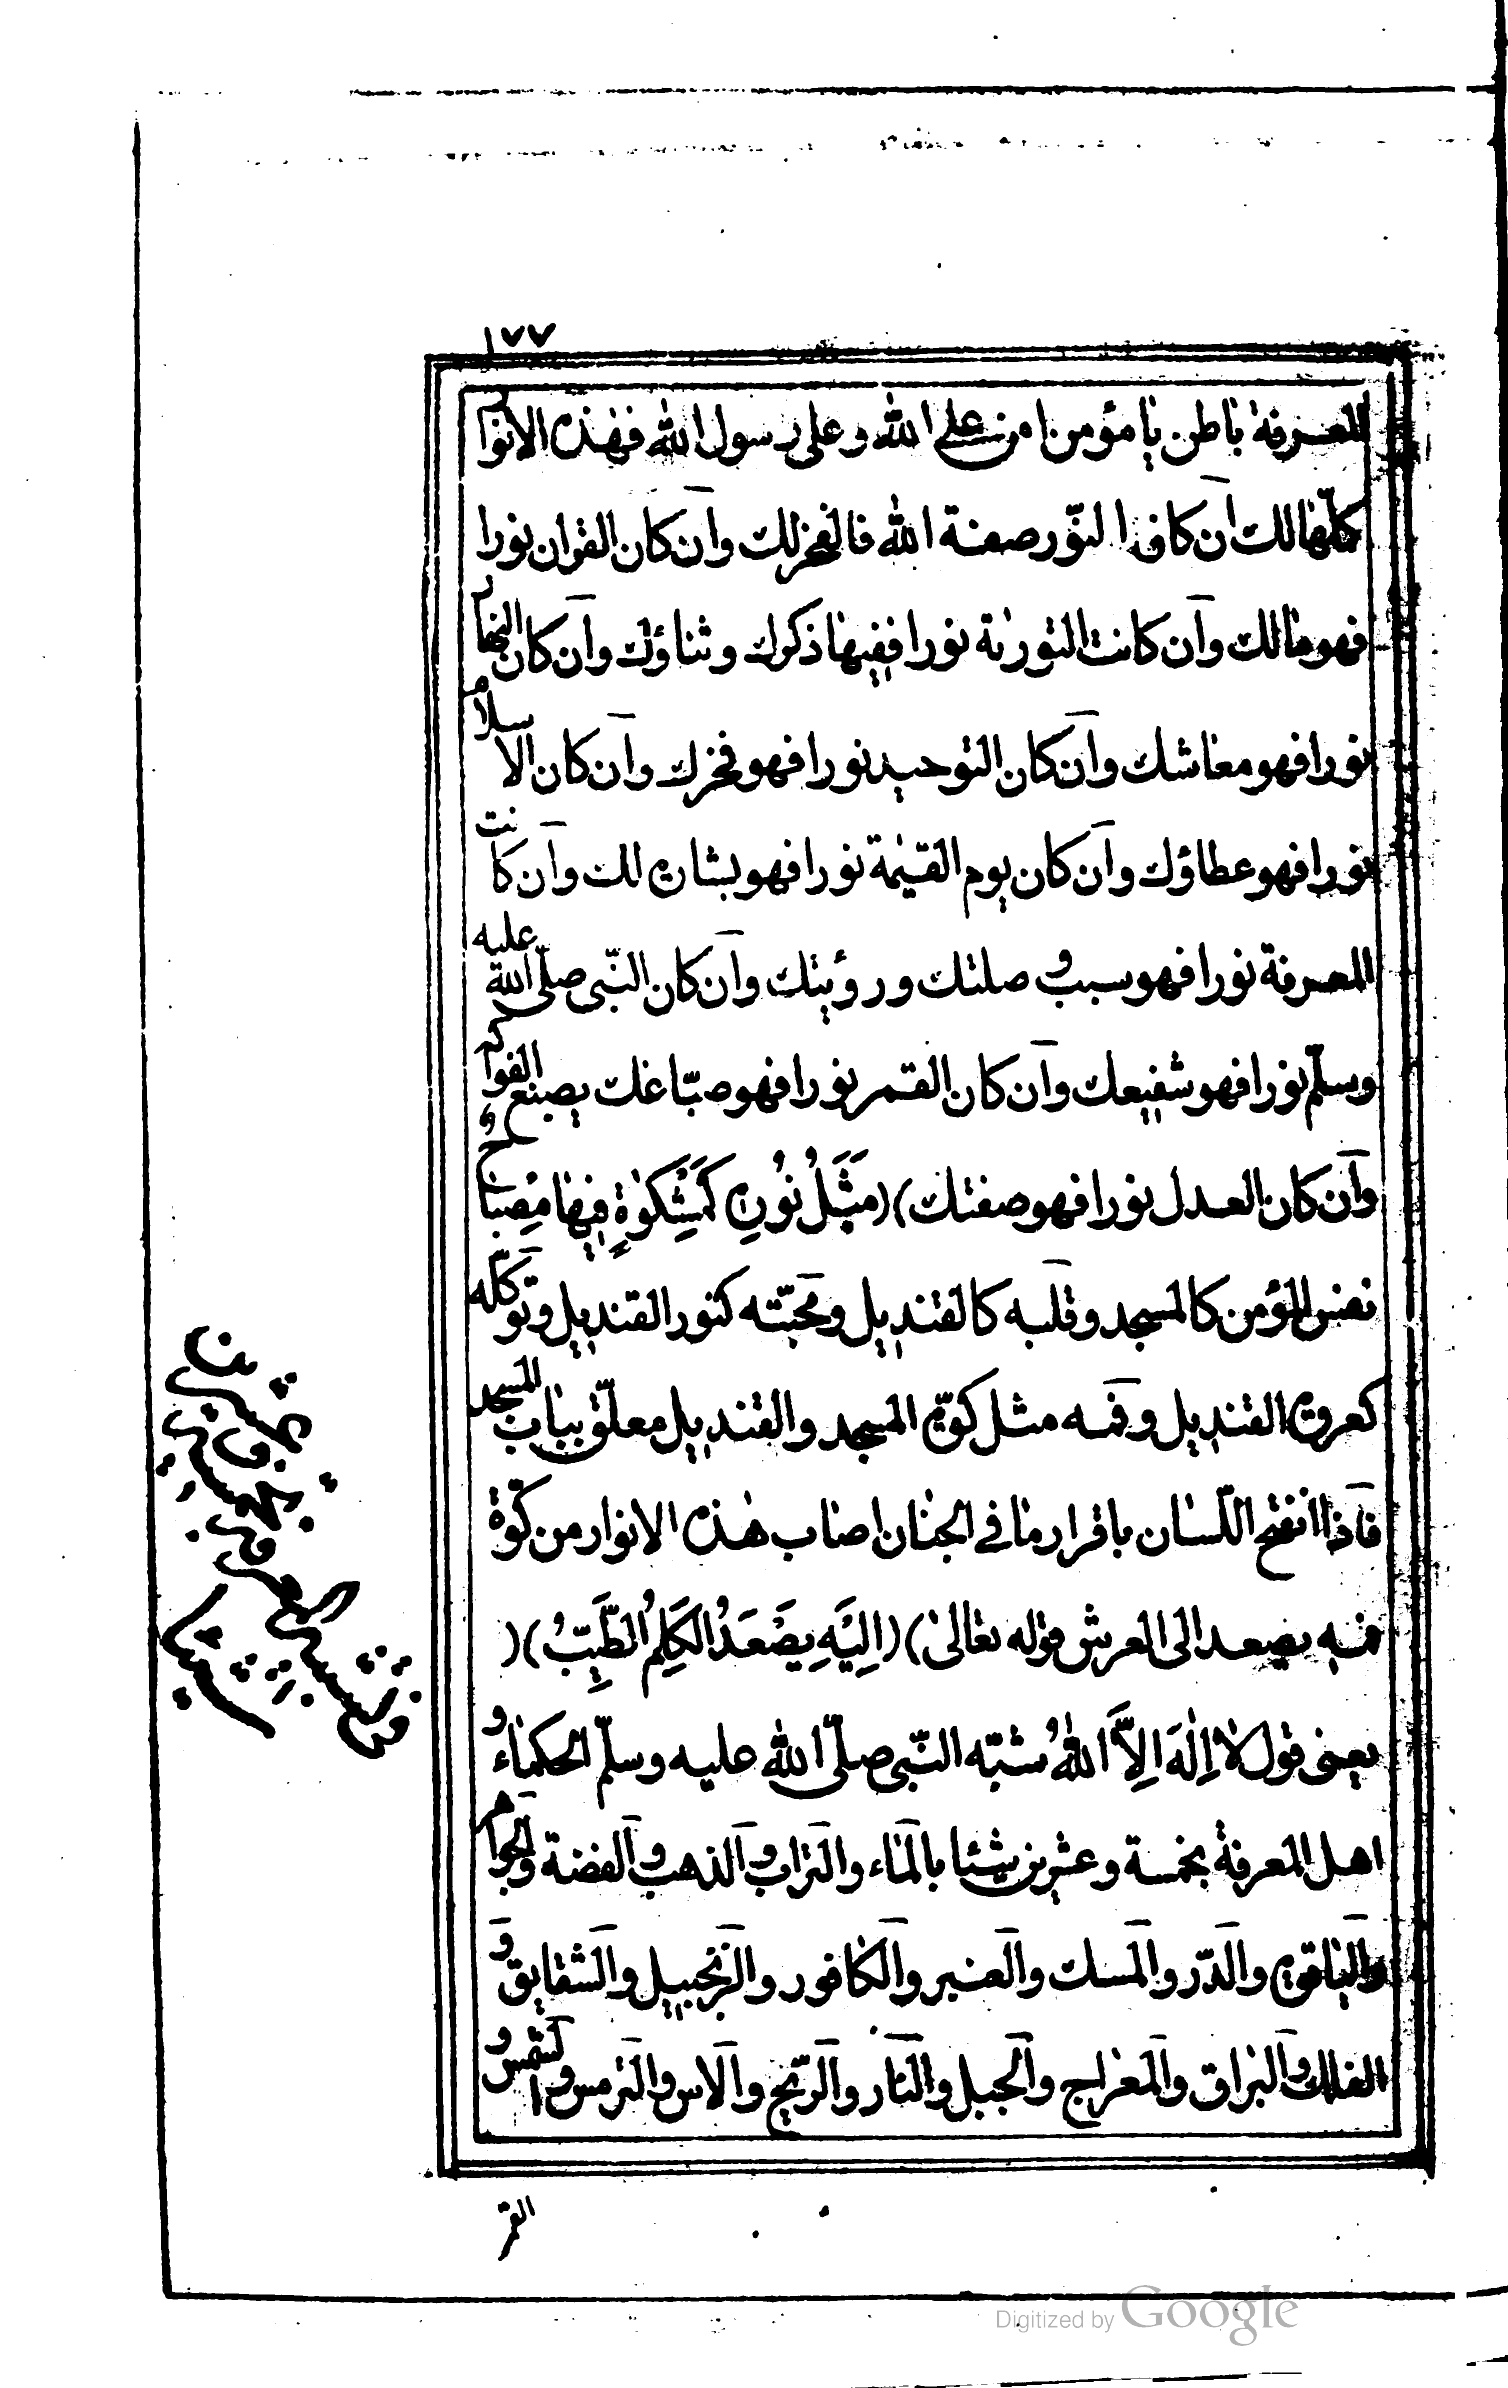 ١٧٧
المعرفة باطن يا مؤمن امن على الله وعلى رسول الله فهذه الانوار
كلّها لك ان كان النّور صفة الله فالفخر لك وان كان القران نورا
فهو مالك وان كانت التورية نورا ففيها ذكرك وثناؤك وان كان النهار
نورا فهو معاشك وان كان التوحيد نورا فهو فخرك وان كان الاسلام
نورا فهو عطاؤك وان كان يوم القيمة نورا فهو بشارة لك وان كانت
المعرفة نورا فهو سبب وصلتك ورؤيتك وان كان النّبى صلّى الله عليه
وسلّم نورا فهو شفيعك وان كان القمر نورا فهو صبّاغك يصبغ الفواكه
وان كان العدل نورا فهو صفتك) (مَثَلُ نُورِهِ كَمِشْكٰوةٍ فِيهَا مِصْبَاحٌ
نفس المؤمن كالمسجد وقلبه كالقنديل ومحبّته كنور القنديل وتوكّله
كعروة القنديل وفمه مثل كوّة المسجد والقنديل معلّق بباب المسجد
فاذا انفتح اللّسان باقرار ما في الجنان اصاب هذه الانوار من كوّة
فمه يصعد الى العرش قوله تعالى) (اِلَيْهِ يَصْعَدُ الْكَلِمُ الطَّيِّبُ) (
يعنى قول لا اِلٰهَ اِلاَّ اللهُ شبّه النّبى صلّى الله عليه وسلّم الحكماء و
اهل المعرفة بخمسة وعشرين شيئا بالماء والتراب والذهب والفضة والجواهر
والياقوت والدّر والمسك والعنبر والكافور والزنجبيل والشقايق و
الفلك والبراق والمعراج والجبل والنار والرّيح والاس والترمس والشمس و
القمر
Digitized by Google